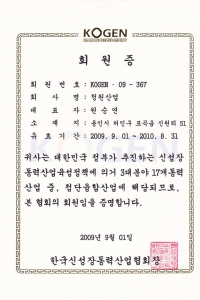 KOGEN
회 원 증
회 원 번 호 : KOGEN - 09 - 367
회 사 명 : 청원산업
대 표 자 : 원승연
소 재 지 : 용인시 처인구 포곡읍 신원리 51
유 효 기 간 : 2009. 9. 01 ~ 2010. 8. 31
귀사는 대한민국 정부가 추진하는 신성장
동력산업육성정책에 의거 3대분야 17개동력
산업 중, 첨단융합산업에 해당되므로,
본 협회의 회원임을 증명합니다.
2009년 9월 01일
한국신성장동력산업협회장